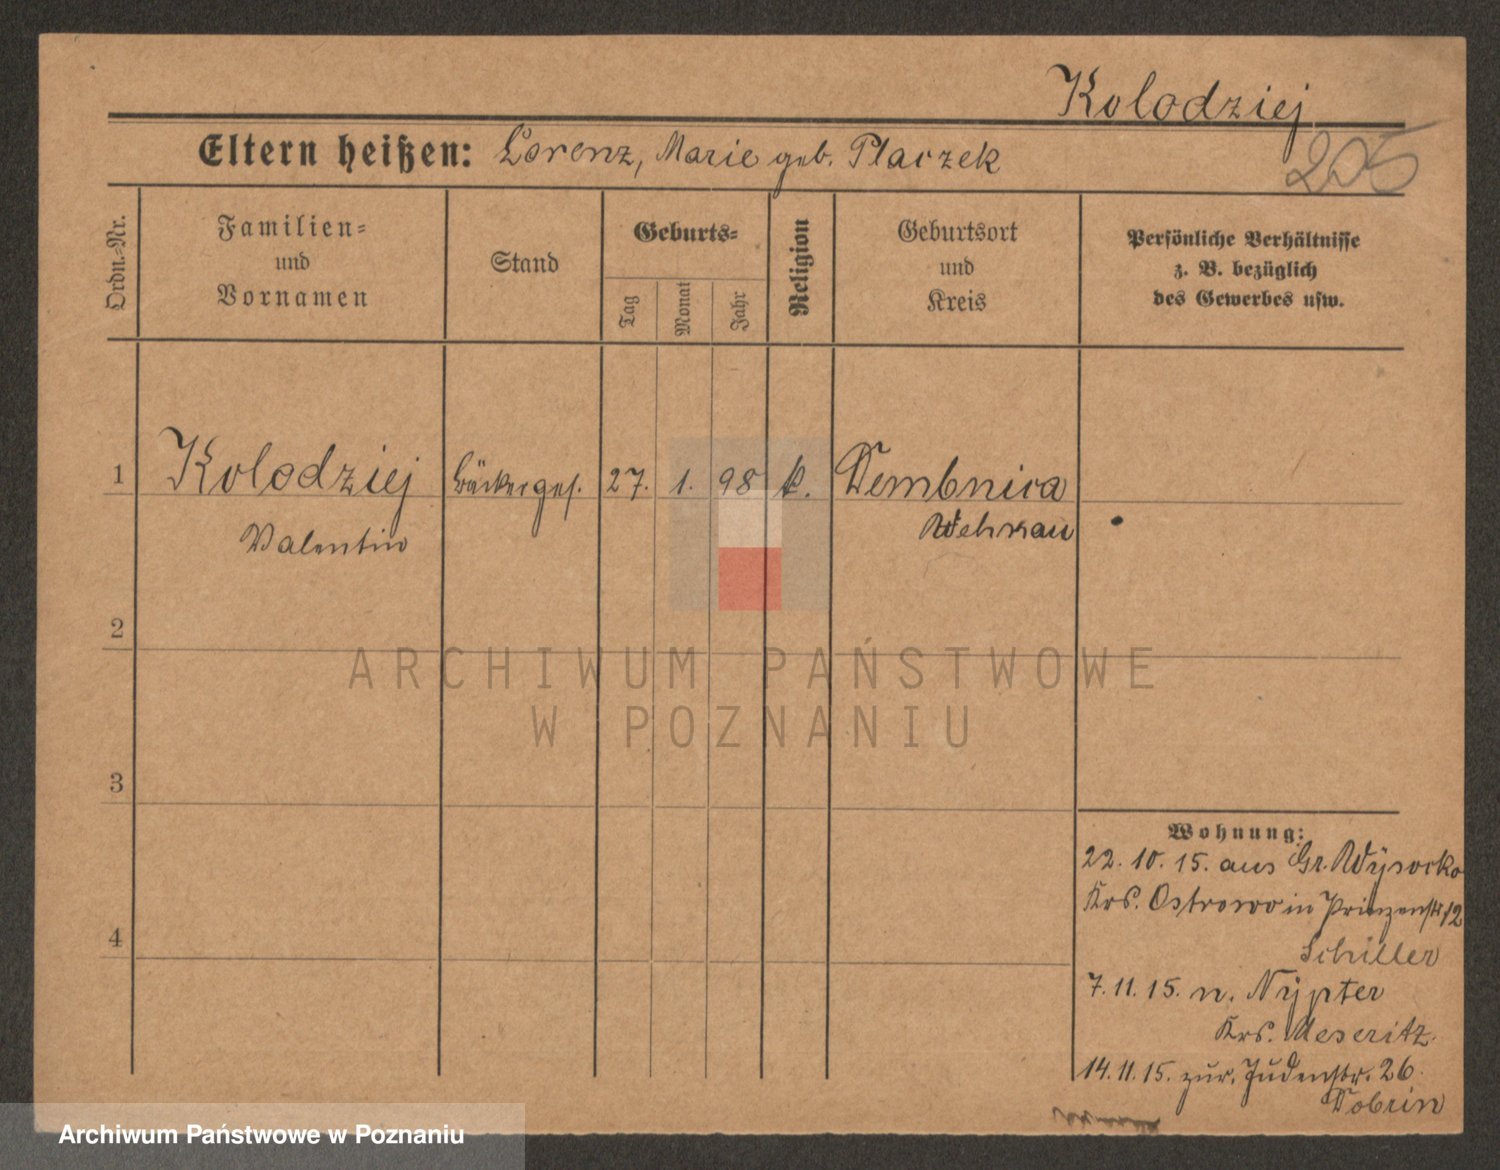 Kolodziej
205
Eltern heißen: Lorenz, Marie geb. Placzek
Ordn.-Nr.
Familien-
und
Vornamen
Stand
Geburts-
Tag
Monat
Jahr
Religion
Geburtsort
und
Kreis
Persönliche Verhältnisse
z. B. bezüglich
des Gewerbes usw.
1 Kolodziej Bäckerges. 27. 1. 98 k. Dembnica
Valentin
2
3
4
Wohnung:
22. 10. 15. aus Gr. Wysocko
Krs. Ostrowo in Prinzenstr 12
Schiller
7. 11. 15. n.
Krs. Meseritz.
14. 11. 15. zur. Judenstr. 26.
Dobrin
ARCHIWUM PAŃSTWOWE
W POZNANIU
Archiwum Państwowe w Poznaniu